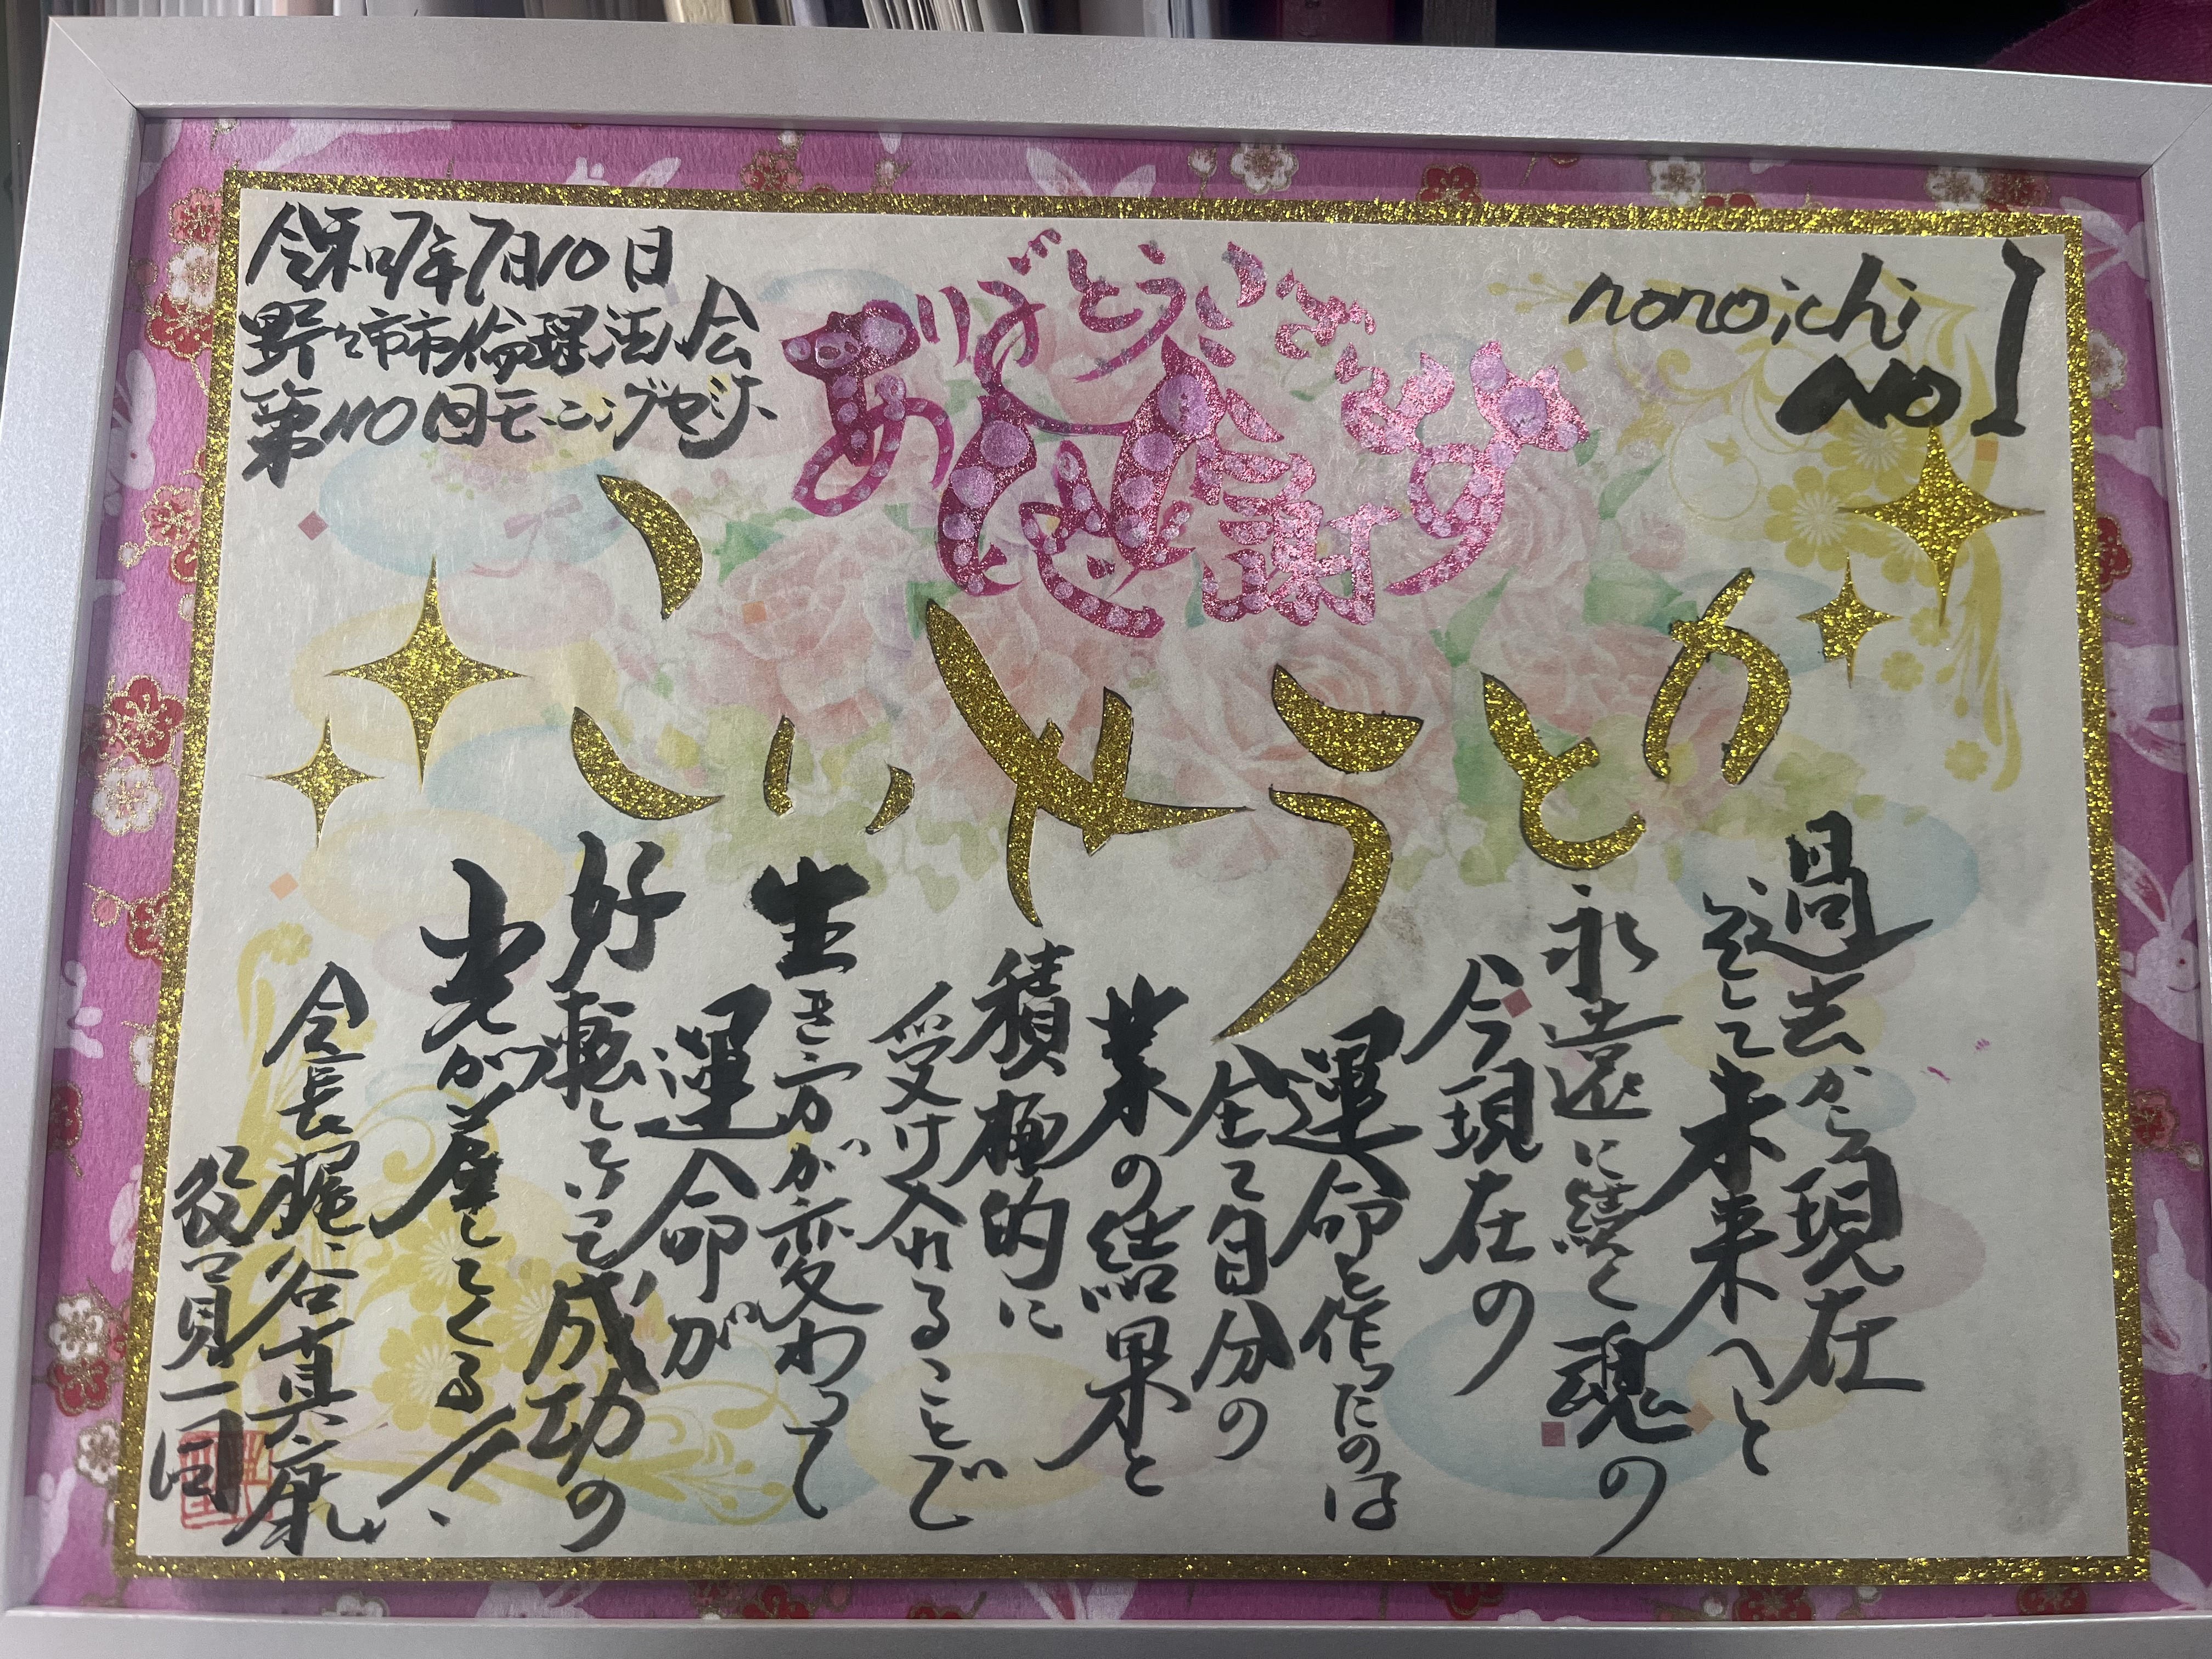 令和7年7月10日
野々市市倫理法人会
第110回モーニングセミナー
ありがとうございます
感謝
nonoichi
No1
過去から現在
そして未来へと
永遠に続く魂の
今現在の
運命を作ったのは
全て自分の
業の結果と
積極的に
受け入れることで
生き方が変わって
運命が
好転していって成功の
光が差してくる!!
会長梶谷真康
役員一同